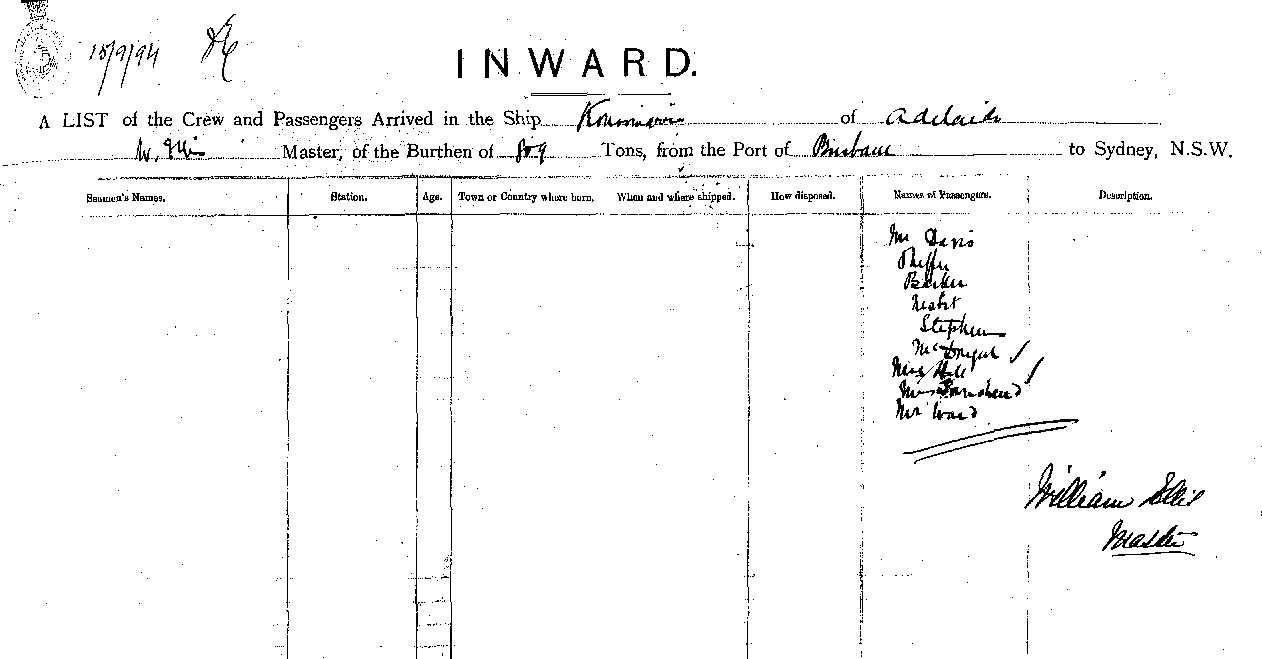 18/9/94
INWARD.
A LIST of the Crew and Passengers Arrived in the Ship of Adelaide
W. Ellis Master, of the Burthen of Tons, from the Port of Brisbane to Sydney, N.S.W.
Seamen's Names. Station. Age. Town or Country where born. When and where shipped. How disposed. Names of Passengers. Description.
Mr Davis
Barker
Nesbit
Stephens
McDougal
Miss Hill
Mrs
Mrs Ward
William Ellis
Master